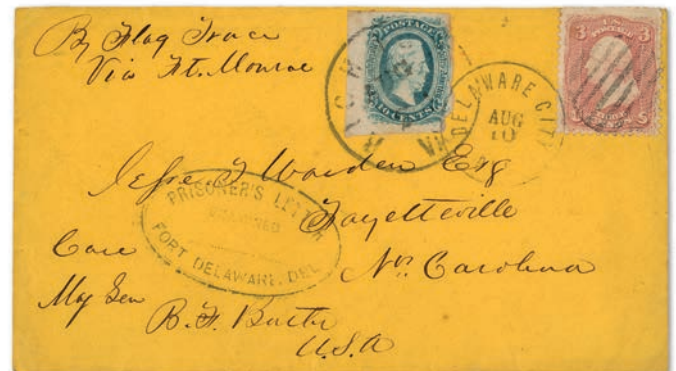 By Flag Truce
Via Ft. Monroe
POSTAGE
10 CENTS
U.S. POSTAGE
3 3
RICH VA
DELAWARE CITY
AUG
10
Jesse T Warden Esq
Fayetteville
No. Carolina
PRISONER'S LETTER
EXAMINED
FORT DELAWARE, DEL
Care
Maj Gen
B. F. Butler
U.S.A